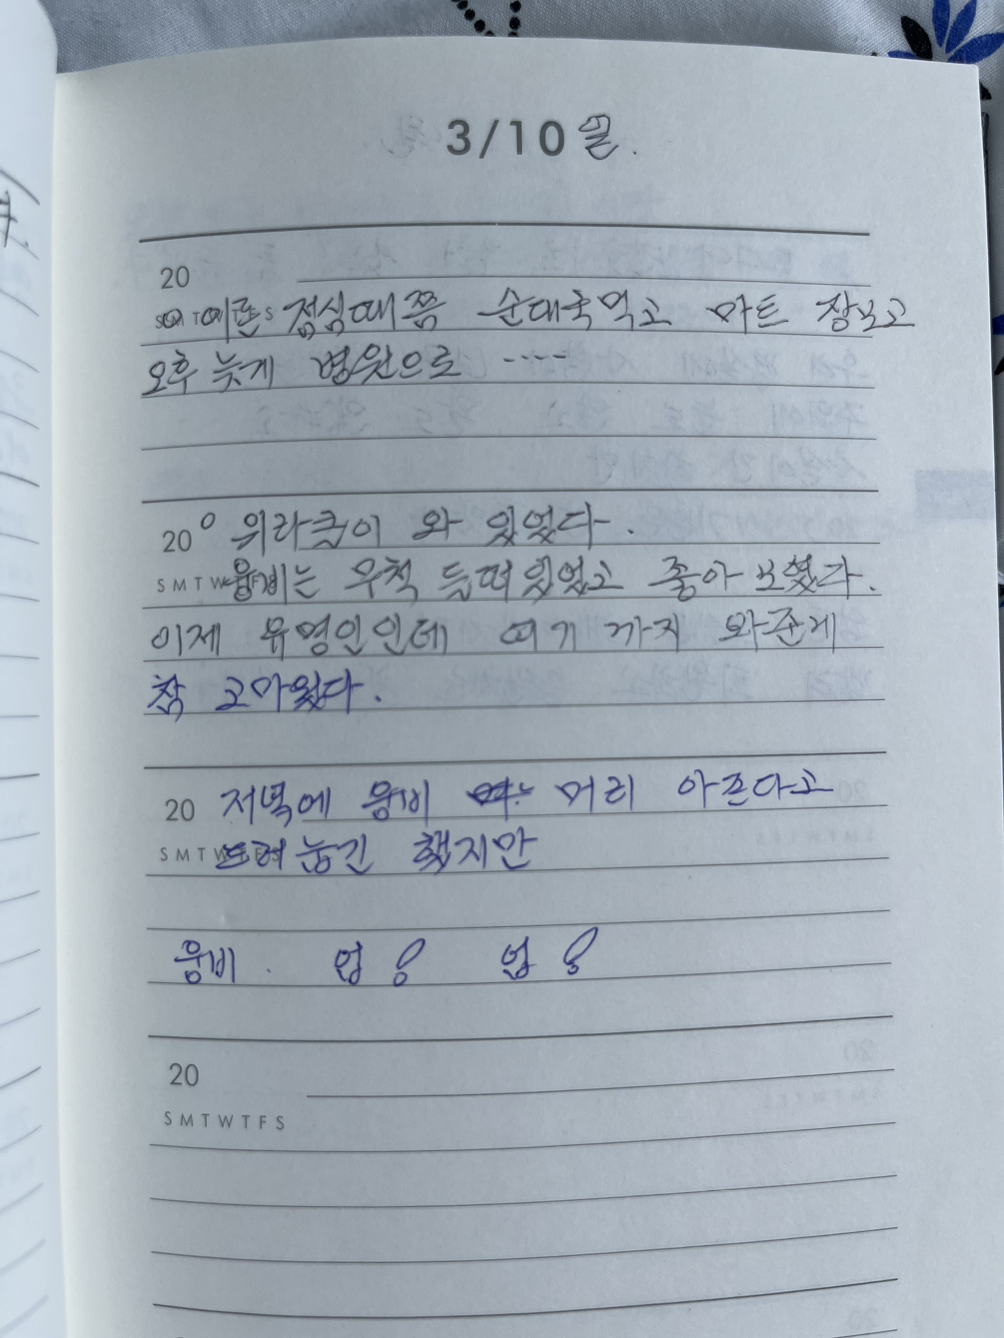 3/10 일.
20
이른 점심때쯤 순대국먹고 마트 장보고
오후 늦게 병원으로 ----
20 위라클이 와 있었다.
S M T W 웅비는 무척 들떠있었고 좋아 보였다.
이제 유명인인데 여기 까지 와준게
참 고마웠다.
20 저녁에 웅비 머리 아프다고
S M T W F S 드러눕긴 했지만
웅비.
20
S M T W T F S